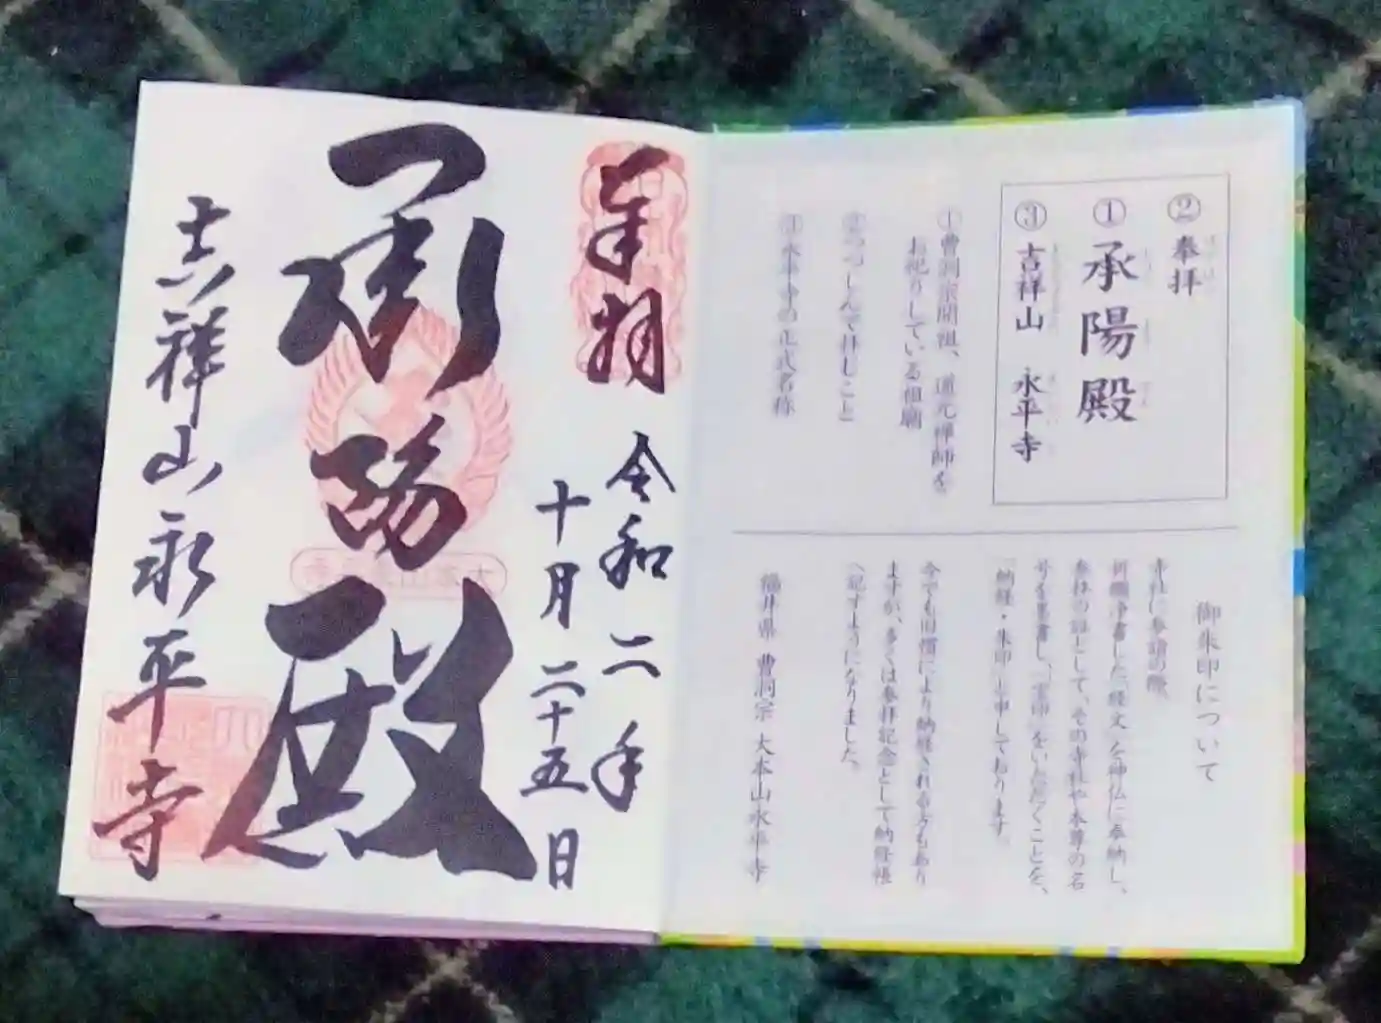 ② 奉拝
① 承陽殿
③ 吉祥山 永平寺
①曹洞宗開祖、道元禅師を
お祀りしている祖廟
②つつしんで拝むこと
③永平寺の正式名称
御朱印について
寺社に参詣の際、
祈願浄書した「経文」を神仏に奉納し、
参拝の証として、その寺社や本尊の名
号を墨書し、「宝印」をいただくことを、
「納経・朱印」と申しております。
今でも旧慣により納経される方もあり
ますが、多くは参拝記念として納経帳
へ記すようになりました。
福井県 曹洞宗 大本山永平寺
奉拝
令和二年
十月二十五日
承陽殿
吉祥山永平寺